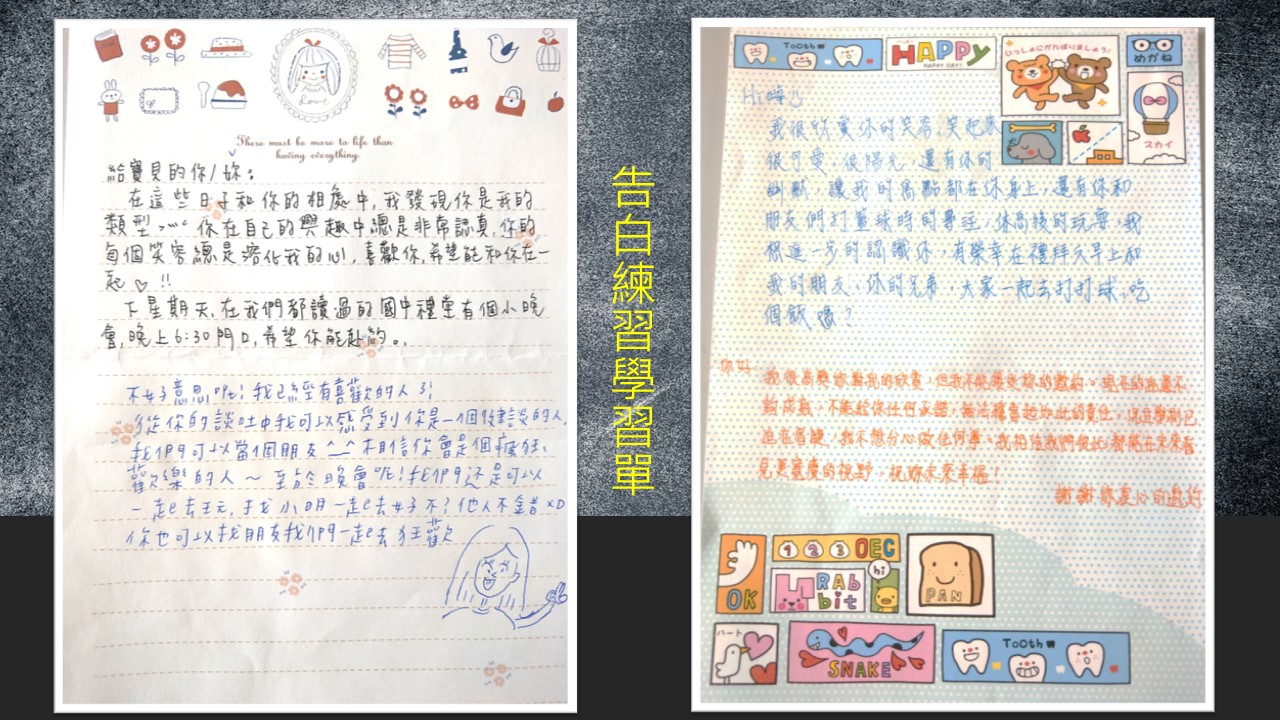 There must be more to life than
having everything.
給寶貝的你/妳:
在這些日子和你的相處中,我發現你是我的
類型>///< 你在自己的興趣中總是非常認真,你的
每個笑容總是溶化我的心,喜歡你,希望能和你在一
起♡!!
下星期天,在我們都讀過的國中禮堂有個小晚
會,晚上6:30門口,希望你能赴約。
不好意思呢!我已經有喜歡的人了!
從你的談吐中我可以感受到你是一個健談的人,
我們可以當個朋友^_^相信你會是個瘋狂、
歡樂的人~至於晚會呢!我們還是可以
一起去玩,找小明一起去好不?他人不錯XD
你也可以找朋友我們一起去狂歡
告白練習學習單
Tooth
HAPPY
HAPPY DAY!
いっしょにがんばりましょう!
めがね
スカイ
Hi 嗨
我很欣賞你的笑容,笑起來
很可愛、很陽光,還有你的
幽默,讓我的焦點都在你身上,還有你和
朋友們打籃球時的專注,休息後的玩耍,我
想進一步的認識你,有榮幸在禮拜天早上和
我的朋友、你的兄弟,大家一起去打打球,吃
個飯嗎?
你好:
我很高興妳對我的欣賞,但我不能接受妳的邀約。現在的我還不
夠成熟,不能給你任何承諾,無法擔當起如此的責任,況且學測已
迫在眉睫,我不想分心做任何事。我相信我們彼此都能在未來看
見更寬廣的視野,祝妳未來幸福!
謝謝你真心的邀約
OK
1 2 3 DEC
RAbbit
hi
PAN
ハート
SNAKE
Tooth